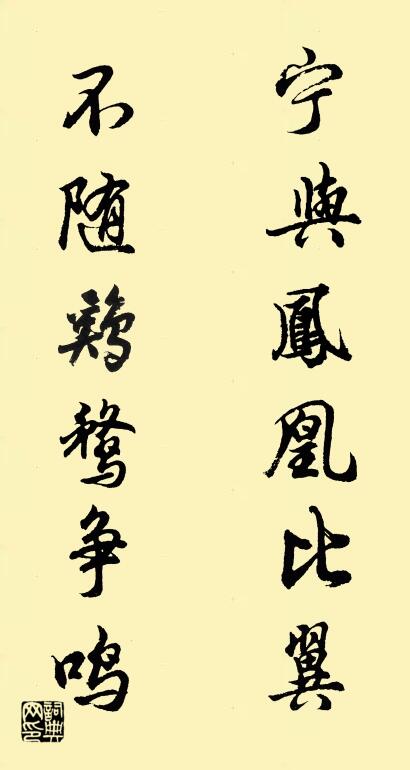 宁與鳳凰比翼
不随鷄鶩争鸣
詞典网印